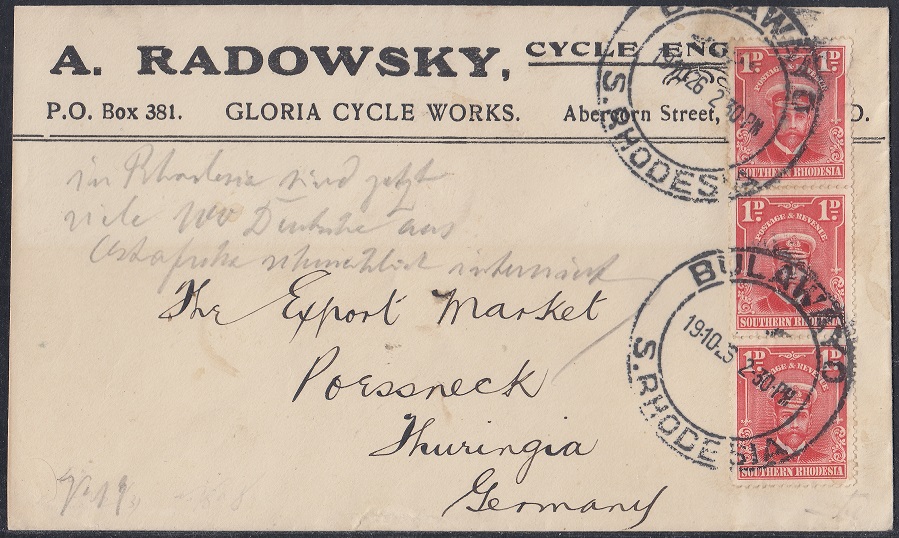 A. RADOWSKY, CYCLE ENG
P.O. Box 381. GLORIA CYCLE WORKS. Abercorn Street,
in Rhodesia sind jetzt
viele Deutsche aus
Ostafrika interniert
The Export Market
Poessneck
Thuringia
Germany
BULAWAYO
2·30 PM
S. RHODESIA
BULAWAYO
19·10 2·30·PM
S. RHODESIA
1D. 1D.
POSTAGE & REVENUE
SOUTHERN RHODESIA
1D. 1D.
POSTAGE & REVENUE
SOUTHERN RHODESIA
1D. 1D.
POSTAGE & REVENUE
SOUTHERN RHODESIA